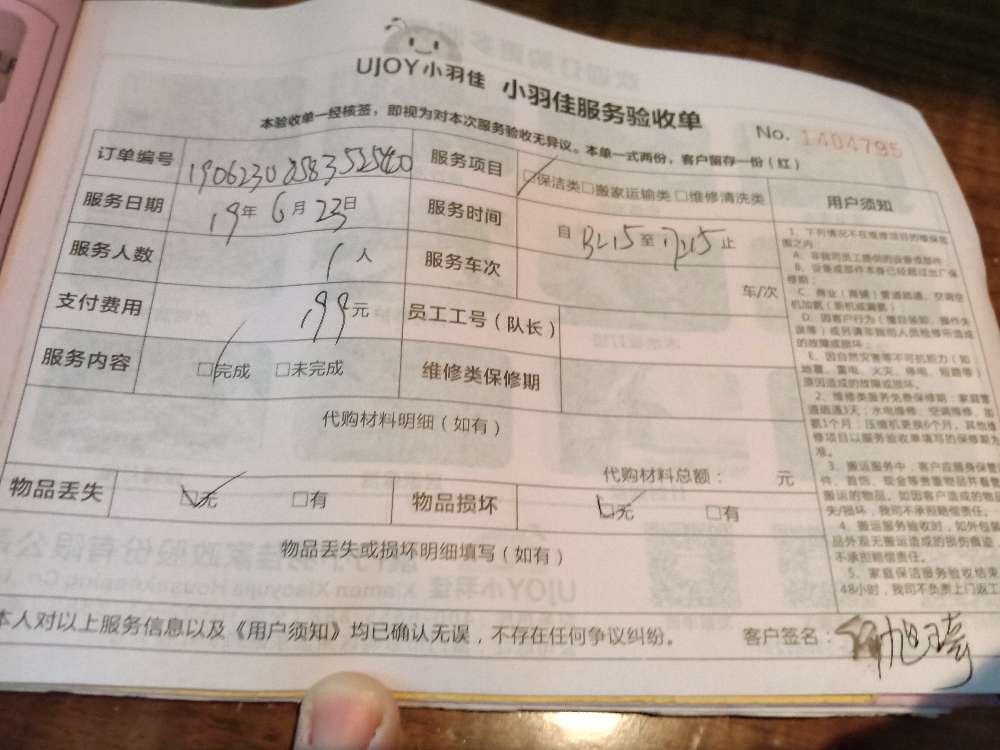 UJOY小羽佳 小羽佳服务验收单
本验收单一经核签，即视为对本次服务验收无异议。本单一式两份，客户留存一份（红）
No. 1404795
订单编号 服务项目 □保洁类□搬家运输类 □维修清洗类 用户须知
服务日期 19年 6月 23日 服务时间 自 至 止
服务人数 1 人 服务车次 车/次
支付费用 199元 员工工号（队长）
服务内容 □完成 □未完成 维修类保修期
代购材料明细（如有）
代购材料总额： 元
物品丢失 □无 □有 物品损坏 □无 □有
物品丢失或损坏明细填写（如有）
本人对以上服务信息以及《用户须知》均已确认无误，不存在任何争议纠纷。 客户签名：
1、下列情况不在维修项目的维保范
围之内
A、非我司员工提供的设备或部件
B、设备或部件本身已经超过出厂保
修期；
D、因客户行为（擅自装卸、操作失
的故障或损坏；
E、因自然灾害等不可抗拒力（如
地震、雷电、火灾、停电、短路等）
原因造成的故障或损坏。
2、维修类服务免费保修期：家居管
道疏通3天；水电维修、空调维修、加
氨3个月；压缩机更换6个月，其他维
修项目以服务验收单填写的保修期为
准。
3、搬运服务中，客户应随身保管
件、首饰、现金等贵重物品并看管
搬运的物品。如因客户造成的物品
失/损坏，我司不承担赔偿责任。
4、搬运服务验收时，如外包装
品外观无搬运造成的损伤痕迹
不承担赔偿责任。
5、家庭保洁服务验收结束
48小时，我司不负责上门返工